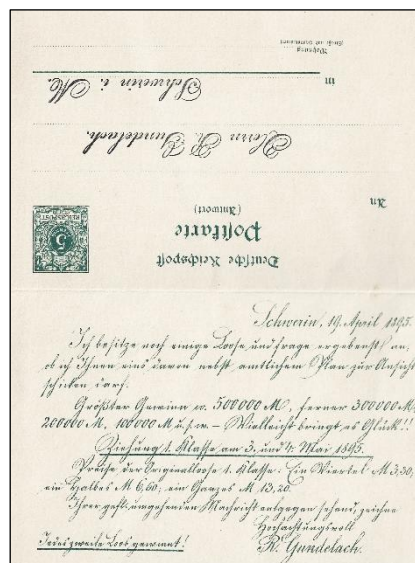 Deutsche Reichspost
Postkarte
(Antwort)
5
REICHSPOST
An
Herrn R. Gundelach.
in
Schwerin i. M.
Wohnung
(Straße und Hausnummer)
Schwerin, 19. April 1895.
Ich besitze noch einige Loose und frage ergebenst an,
ob ich Ihnen eins davon nebst amtlichem Plan zur Ansicht
schicken darf.
Größter Gewinn ev. 500000 M, ferner 300000 M,
200000 M, 100000 M u.s.w. – Vielleicht bringt es Glück!!
Ziehung 1. Klasse am 3. und 4. Mai 1895.
Preise der Originalloose 1. Klasse: Ein Viertel M 3,30,
ein Halbes M 6,60, ein Ganzes M 13,20.
Ihrer gefl. umgehenden Nachricht entgegen sehend, zeichne
Hochachtungsvoll
Jedes zweite Loos gewinnt!
R. Gundelach.